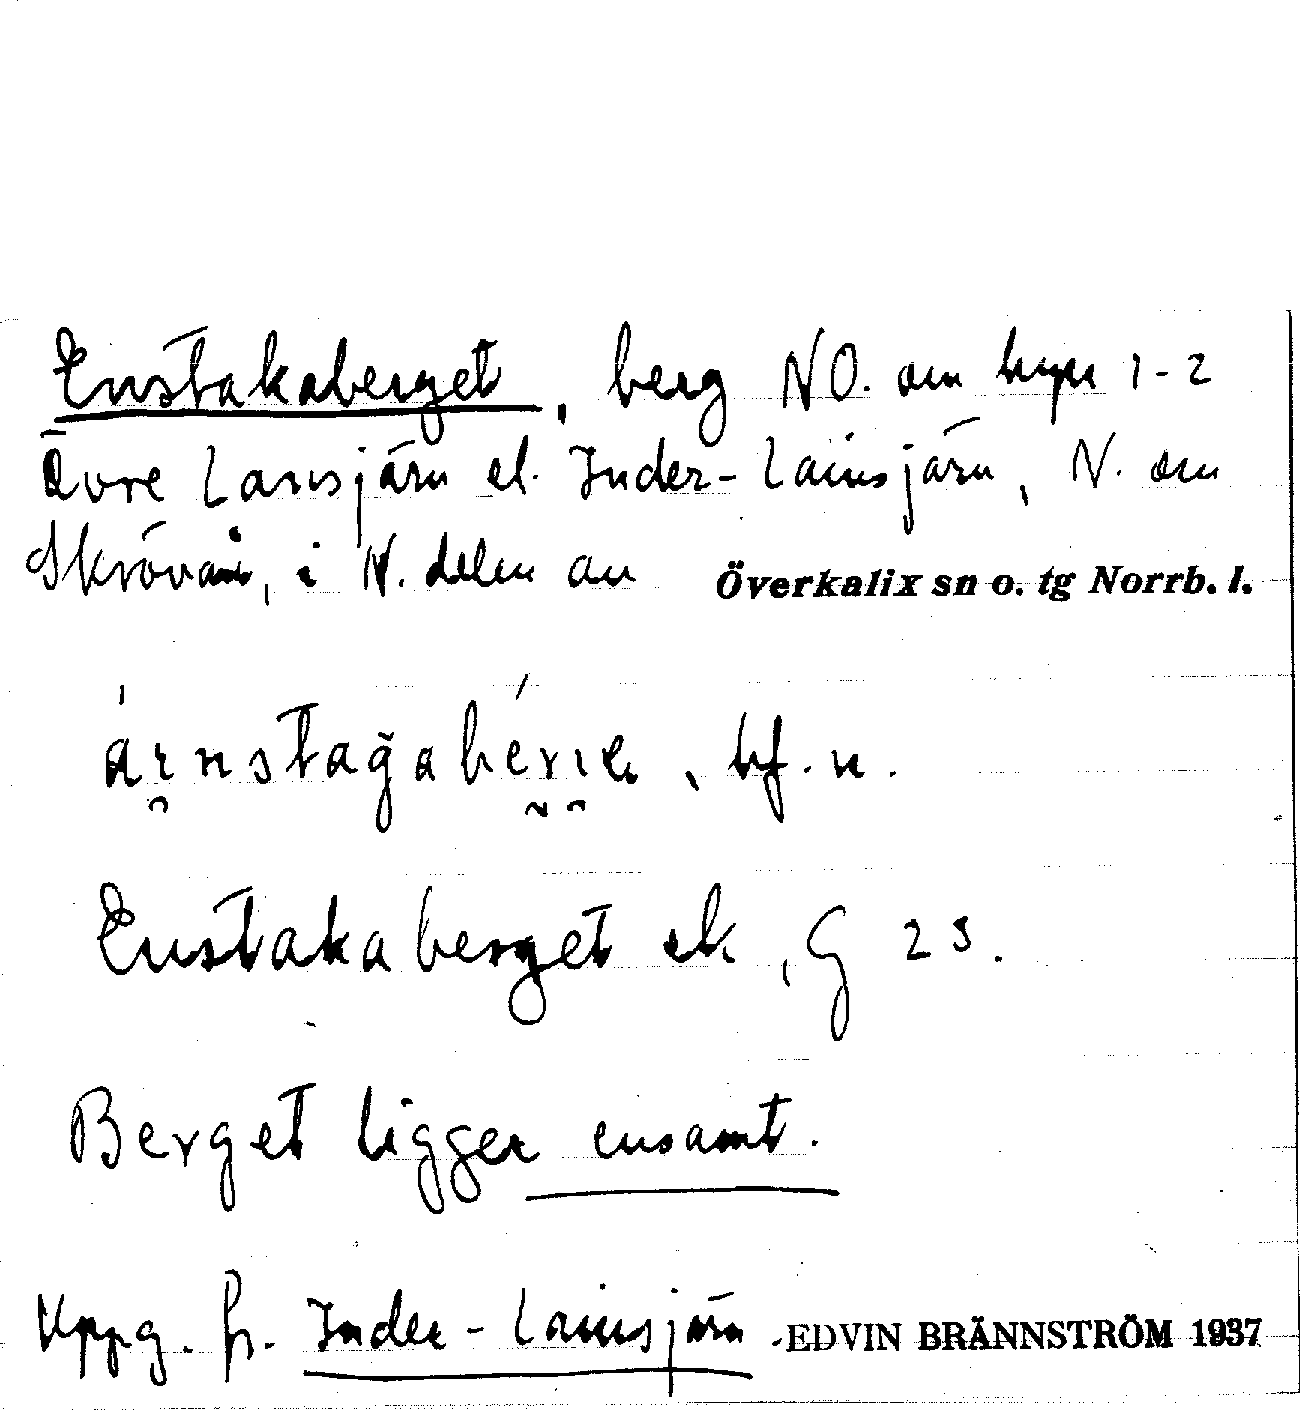 Enstakaberget, berg NO. om byn 1-2
Övre Lansjärv el. Inder-Lainsjärv, N. om
Skrövån, i N. delen av Överkalix sn o. tg Norrb. l.
bf. n.
Enstakaberget ek, G 23.
Berget ligger ensamt.
Uppg. fr. Inder-Lainsjärv EDVIN BRÄNNSTRÖM 1937